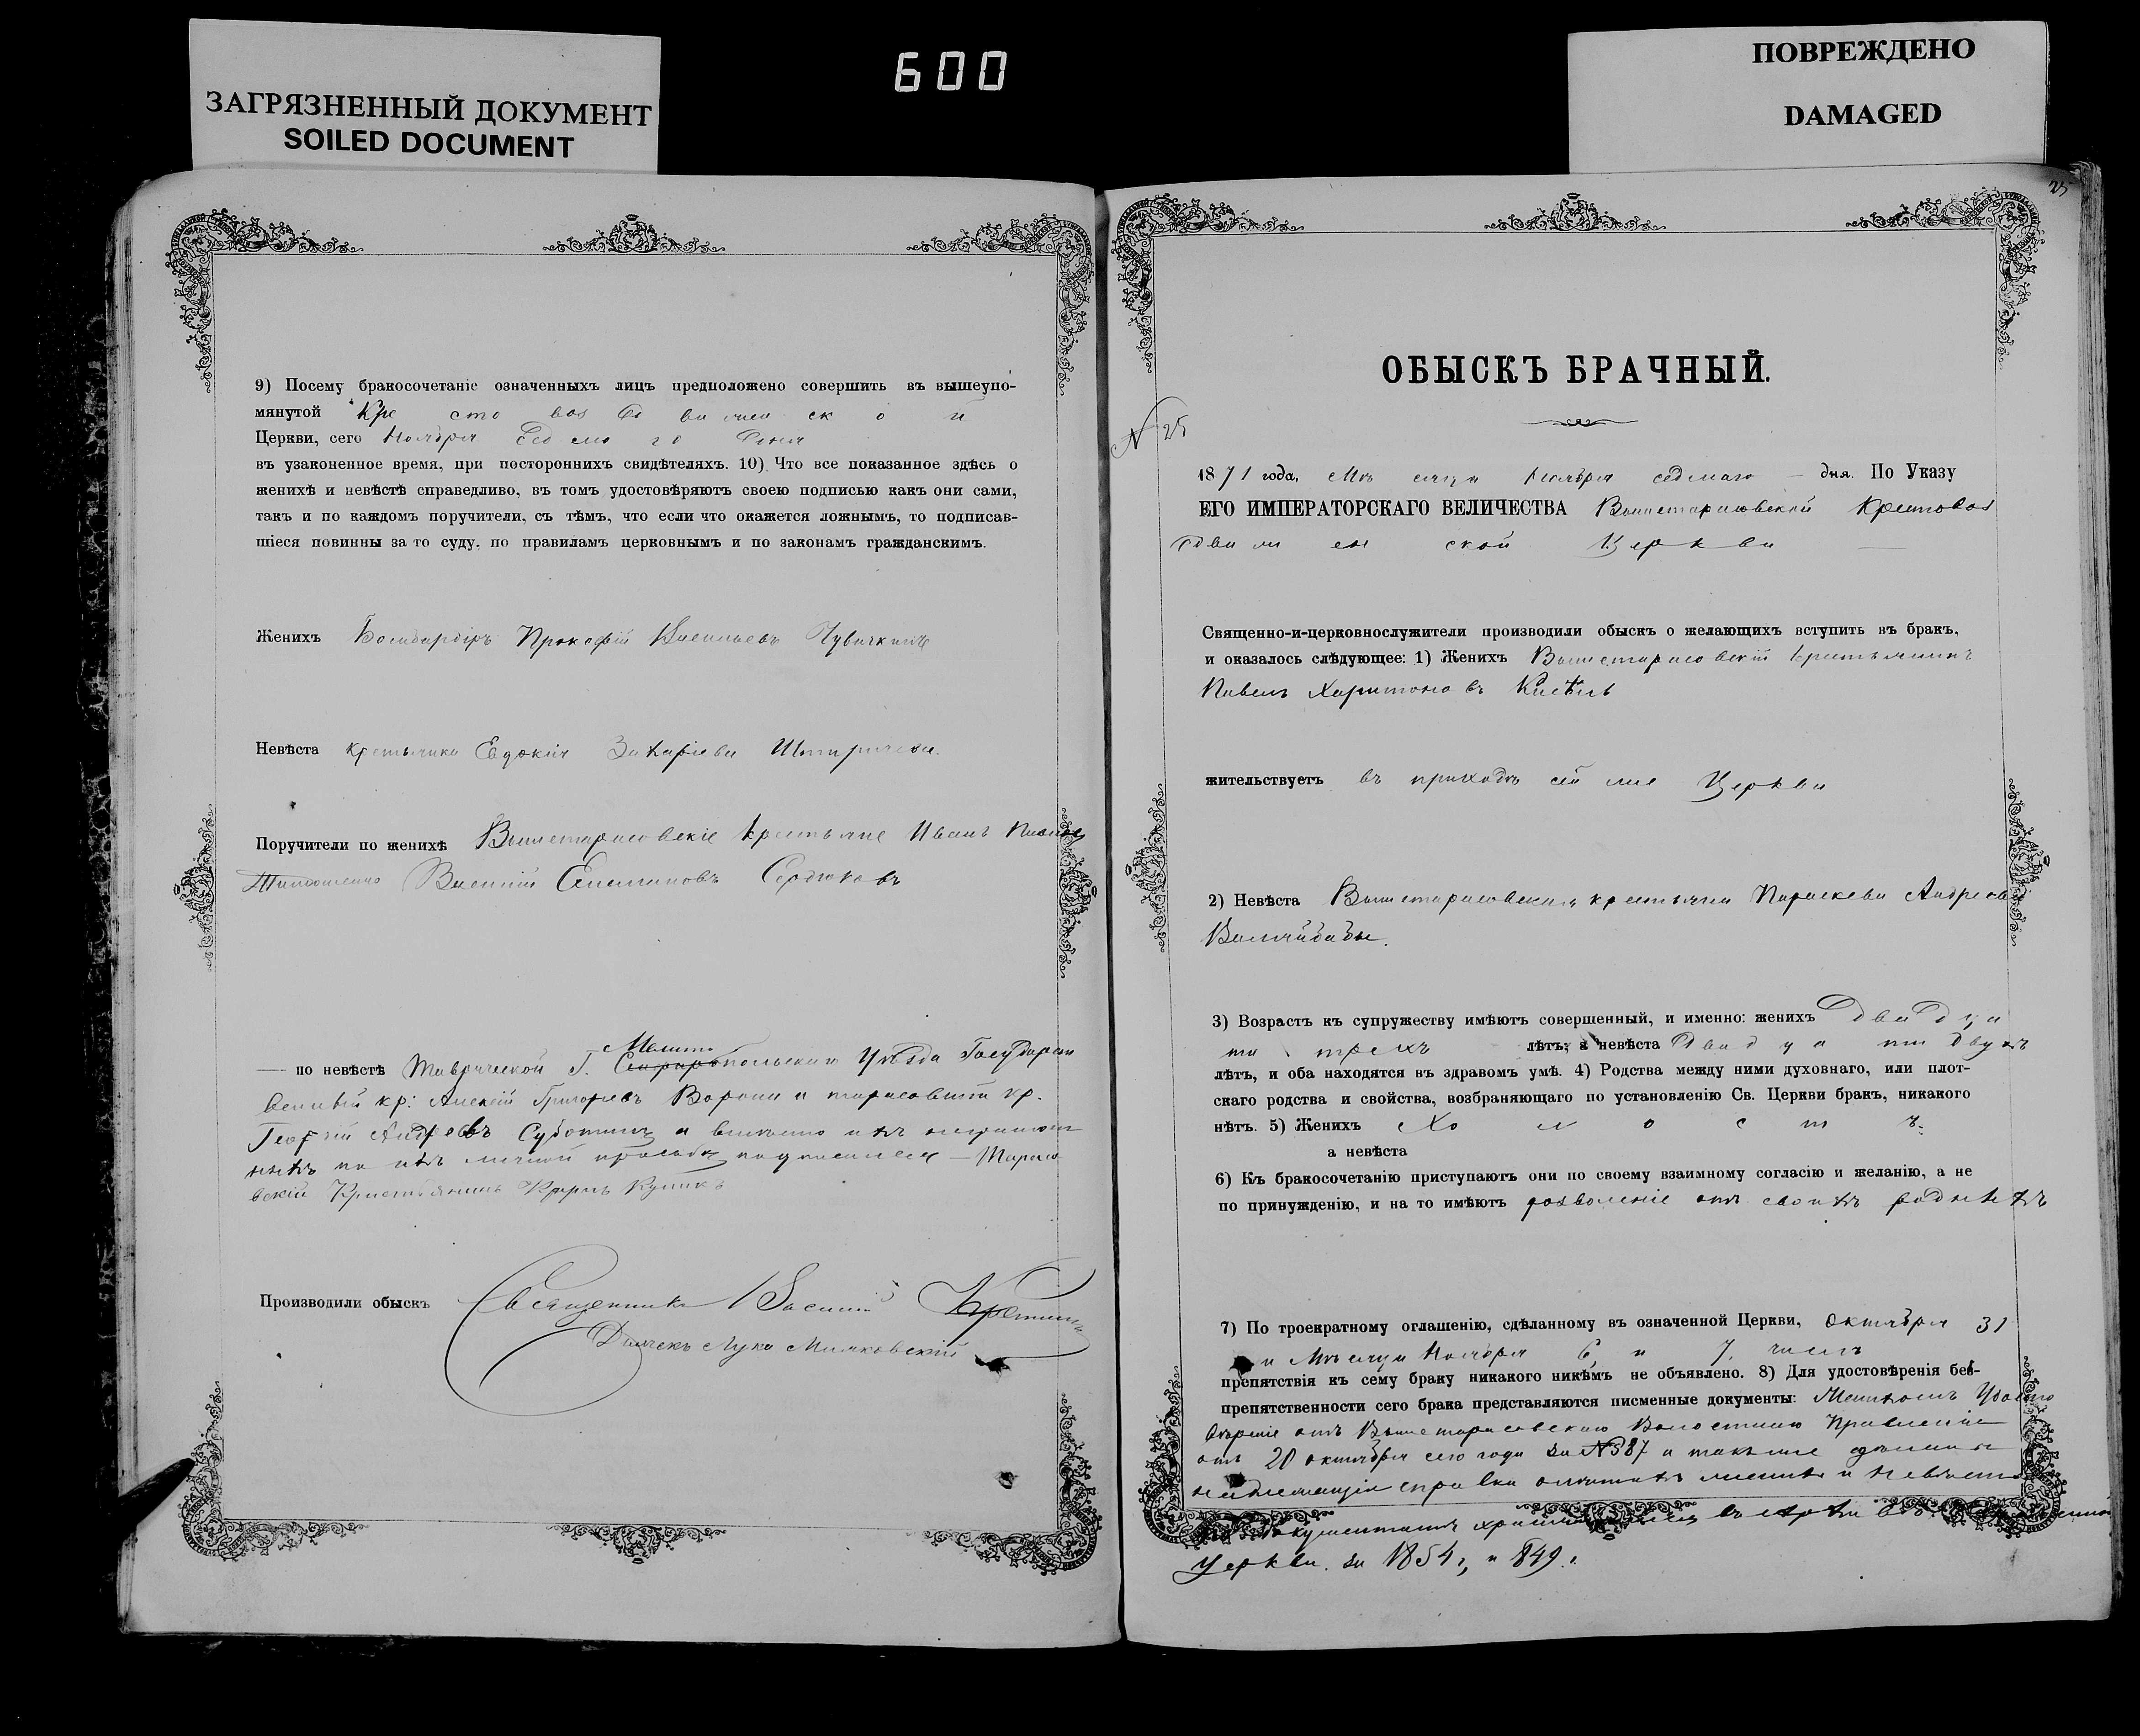 ЗАГРЯЗНЕННЫЙ ДОКУМЕНТ
SOILED DOCUMENT
600
ПОВРЕЖДЕНО
DAMAGED
9) Посему бракосочетаніе означенныхъ лицъ предположено совершить въ вышеупо-
мянутой Крестовоздвиженской
Церкви, сего Ноября седмаго дня
въ узаконенное время, при постороннихъ свидѣтеляхъ. 10) Что все показанное здѣсь о
женихѣ и невѣстѣ справедливо, въ томъ удостовѣряютъ своею подписью какъ они сами,
такъ и по каждомъ поручители, съ тѣмъ, что если что окажется ложнымъ, то подписав-
шіеся повинны за то суду, по правиламъ церковнымъ и по законамъ гражданскимъ.
Женихъ Бомбардиръ Прокофій Васильевъ
Невѣста крестьянка Евдокія Захаріева
Поручители по женихѣ Вышетарасовскіе крестьяне Иванъ
Василій Сердюковъ
— по невѣстѣ Таврической Г. Мелито польскаго Уѣзда Государст
венный кр: Алексѣй Григорьевъ Ворона и тарасовскій кр.
Георгій Андреевъ а вмѣсто ихъ неграмот
ныхъ по ихъ личной просьбѣ подписался — Тарасо
вскій Крестьянинъ Куликъ
Производили обыскъ Священникъ Василій
Дьячекъ Лука
25
ОБЫСКЪ БРАЧНЫЙ.
N 25
1871 года, Мѣсяца Ноября седмаго — дня. По Указу
ЕГО ИМПЕРАТОРСКАГО ВЕЛИЧЕСТВА Вышетарасовской Крестовоз
движенской Церкви —
Священно-и-церковнослужители производили обыскъ о желающихъ вступить въ бракъ,
и оказалось слѣдующее: 1) Женихъ Вышетарасовскій крестьянинъ
Павелъ Харитоновъ
жительствуетъ въ приходѣ сей же Церкви
2) Невѣста Вышетарасовская крестьянка Параскева Андреева
3) Возрастъ къ супружеству имѣютъ совершенный, и именно: женихъ двадца
ти трехъ лѣтъ, а невѣста двадцати двухъ
лѣтъ, и оба находятся въ здравомъ умѣ. 4) Родства между ними духовнаго, или плот-
скаго родства и свойства, возбраняющаго по установленію Св. Церкви бракъ, никакого
нѣтъ. 5) Женихъ холостъ
а невѣста
6) Къ бракосочетанію приступаютъ они по своему взаимному согласію и желанію, а не
по принужденію, и на то имѣютъ дозволеніе отъ своихъ родныхъ
7) По троекратному оглашенію, сдѣланному въ означенной Церкви, октября 31
и Мѣсяца Ноября 6 и 7. числъ
препятствія къ сему браку никакого никѣмъ не объявлено. 8) Для удостовѣренія без-
препятственности сего брака представляются писменные документы: Женихомъ Удосто
вѣреніе отъ Вышетарасовскаго Волостнаго Правленія
отъ 20 октября сего года за №387 а также даны
надлежащія справки о женихѣ и невѣстѣ
документамъ въ
церкви. за 1854 г, и 849 г.